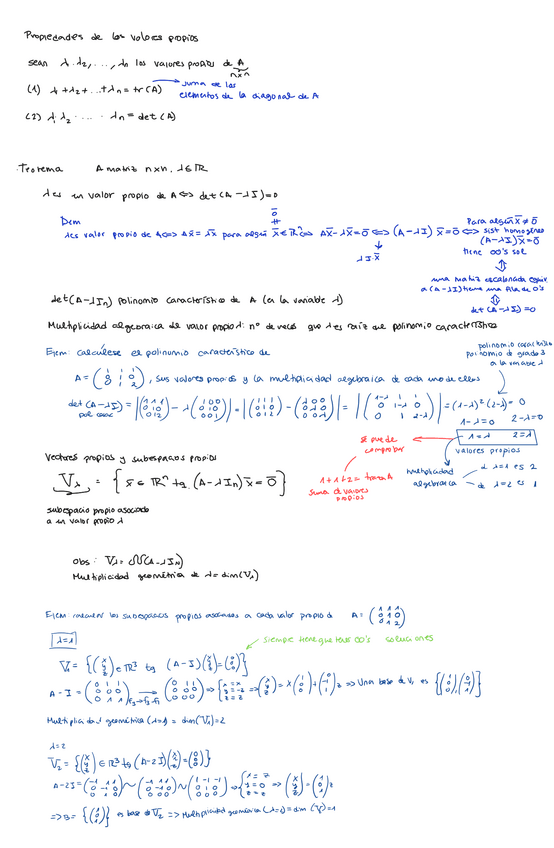 Propiedades de los valores propios
sean λ₁ λ₂, ..., λn los valores propios de A
n×n
(1) λ₁+λ₂+...+λn = tr(A) → suma de los
elementos de la diagonal de A
(2) λ₁ λ₂ ... λn = det(A)
Teorema A matriz n×n, λ∈ℝ
λ es un valor propio de A ⇔ det(A-λI)=0
Dem
λ es valor propio de A ⇔ Ax̄ = λx̄ para algún x̄∈ℝⁿ ⇔ Ax̄-λx̄=0̄ ⇔ (A-λI)x̄=0̄ ⇔ sist homogéneo
0̄
λI·x̄
Para algún x̄≠0̄
(A-λI)x̄=0̄
tiene ∞'s sol
una matriz escalonada equiv
a (A-λI) tiene una fila de 0's
det(A-λI)=0
det(A-λIn) polinomio característico de A (en la variable λ)
Multiplicidad algebraica del valor propio λ: nº de veces que λ es raíz del polinomio característico
Ejem: calcúlese el polinomio característico de
A = (1 1 1; 0 1 0; 0 1 2), sus valores propios y la multiplicidad algebraica de cada uno de ellos
polinomio característico
polinomio de grado 3
a la variable λ
det(A-λI) = |(1 1 1; 0 1 0; 0 1 2) - λ(1 0 0; 0 1 0; 0 0 1)| = |(1 1 1; 0 1 0; 0 1 2) - (λ 0 0; 0 λ 0; 0 0 λ)| = |(1-λ 1 1; 0 1-λ 0; 0 1 2-λ)| = (1-λ)²(2-λ) = 0
1-λ=0 2-λ=0
1=λ 2=λ
valores propios
se puede
comprobar
1+1+2 = traza A
suma de valores
propios
multiplicidad
algebraica
λ=1 es 2
de λ=2 es 1
Vectores propios y subespacios propios
Vλ = {x̄ ∈ ℝⁿ tq (A-λIn)x̄ = 0̄}
subespacio propio asociado
a un valor propio λ
obs: Vλ = N(A-λIn)
Multiplicidad geométrica de λ = dim(Vλ)
Ejem calcular los subespacios propios asociados a cada valor propio de A = (1 1 1; 0 1 0; 0 1 2)
λ=1
siempre tiene que tener ∞'s soluciones
V₁ = {(x; y; z) ∈ ℝ³ tq (A-I)(x; y; z)=(0; 0; 0)}
Multiplicidad geométrica (λ=1) = dim(V₁)=2
λ=2
V₂ = {(x; y; z) ∈ ℝ³ tq (A-2I)(x; y; z)=(0; 0; 0)}
⇒ B = {(1; 0; 1)} es base de V₂ ⇒ Multiplicidad geométrica (λ=2) = dim (V₂)=1